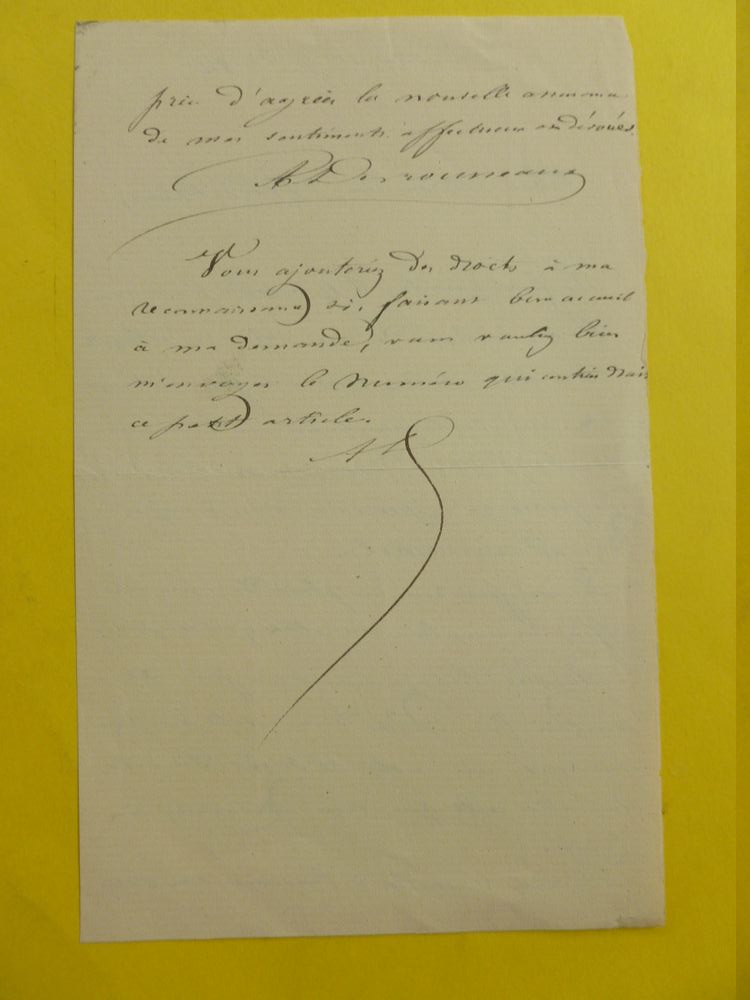 prie d'agréer la nouvelle assurance
de mes sentiments affectueux et dévoués.
A Desrousseaux
Vous ajouteriez des droits à ma
reconnaissance si, faisant bon accueil
à ma demande, vous vouliez bien
m'envoyer le numéro qui contiendrait
ce petit article.
AD